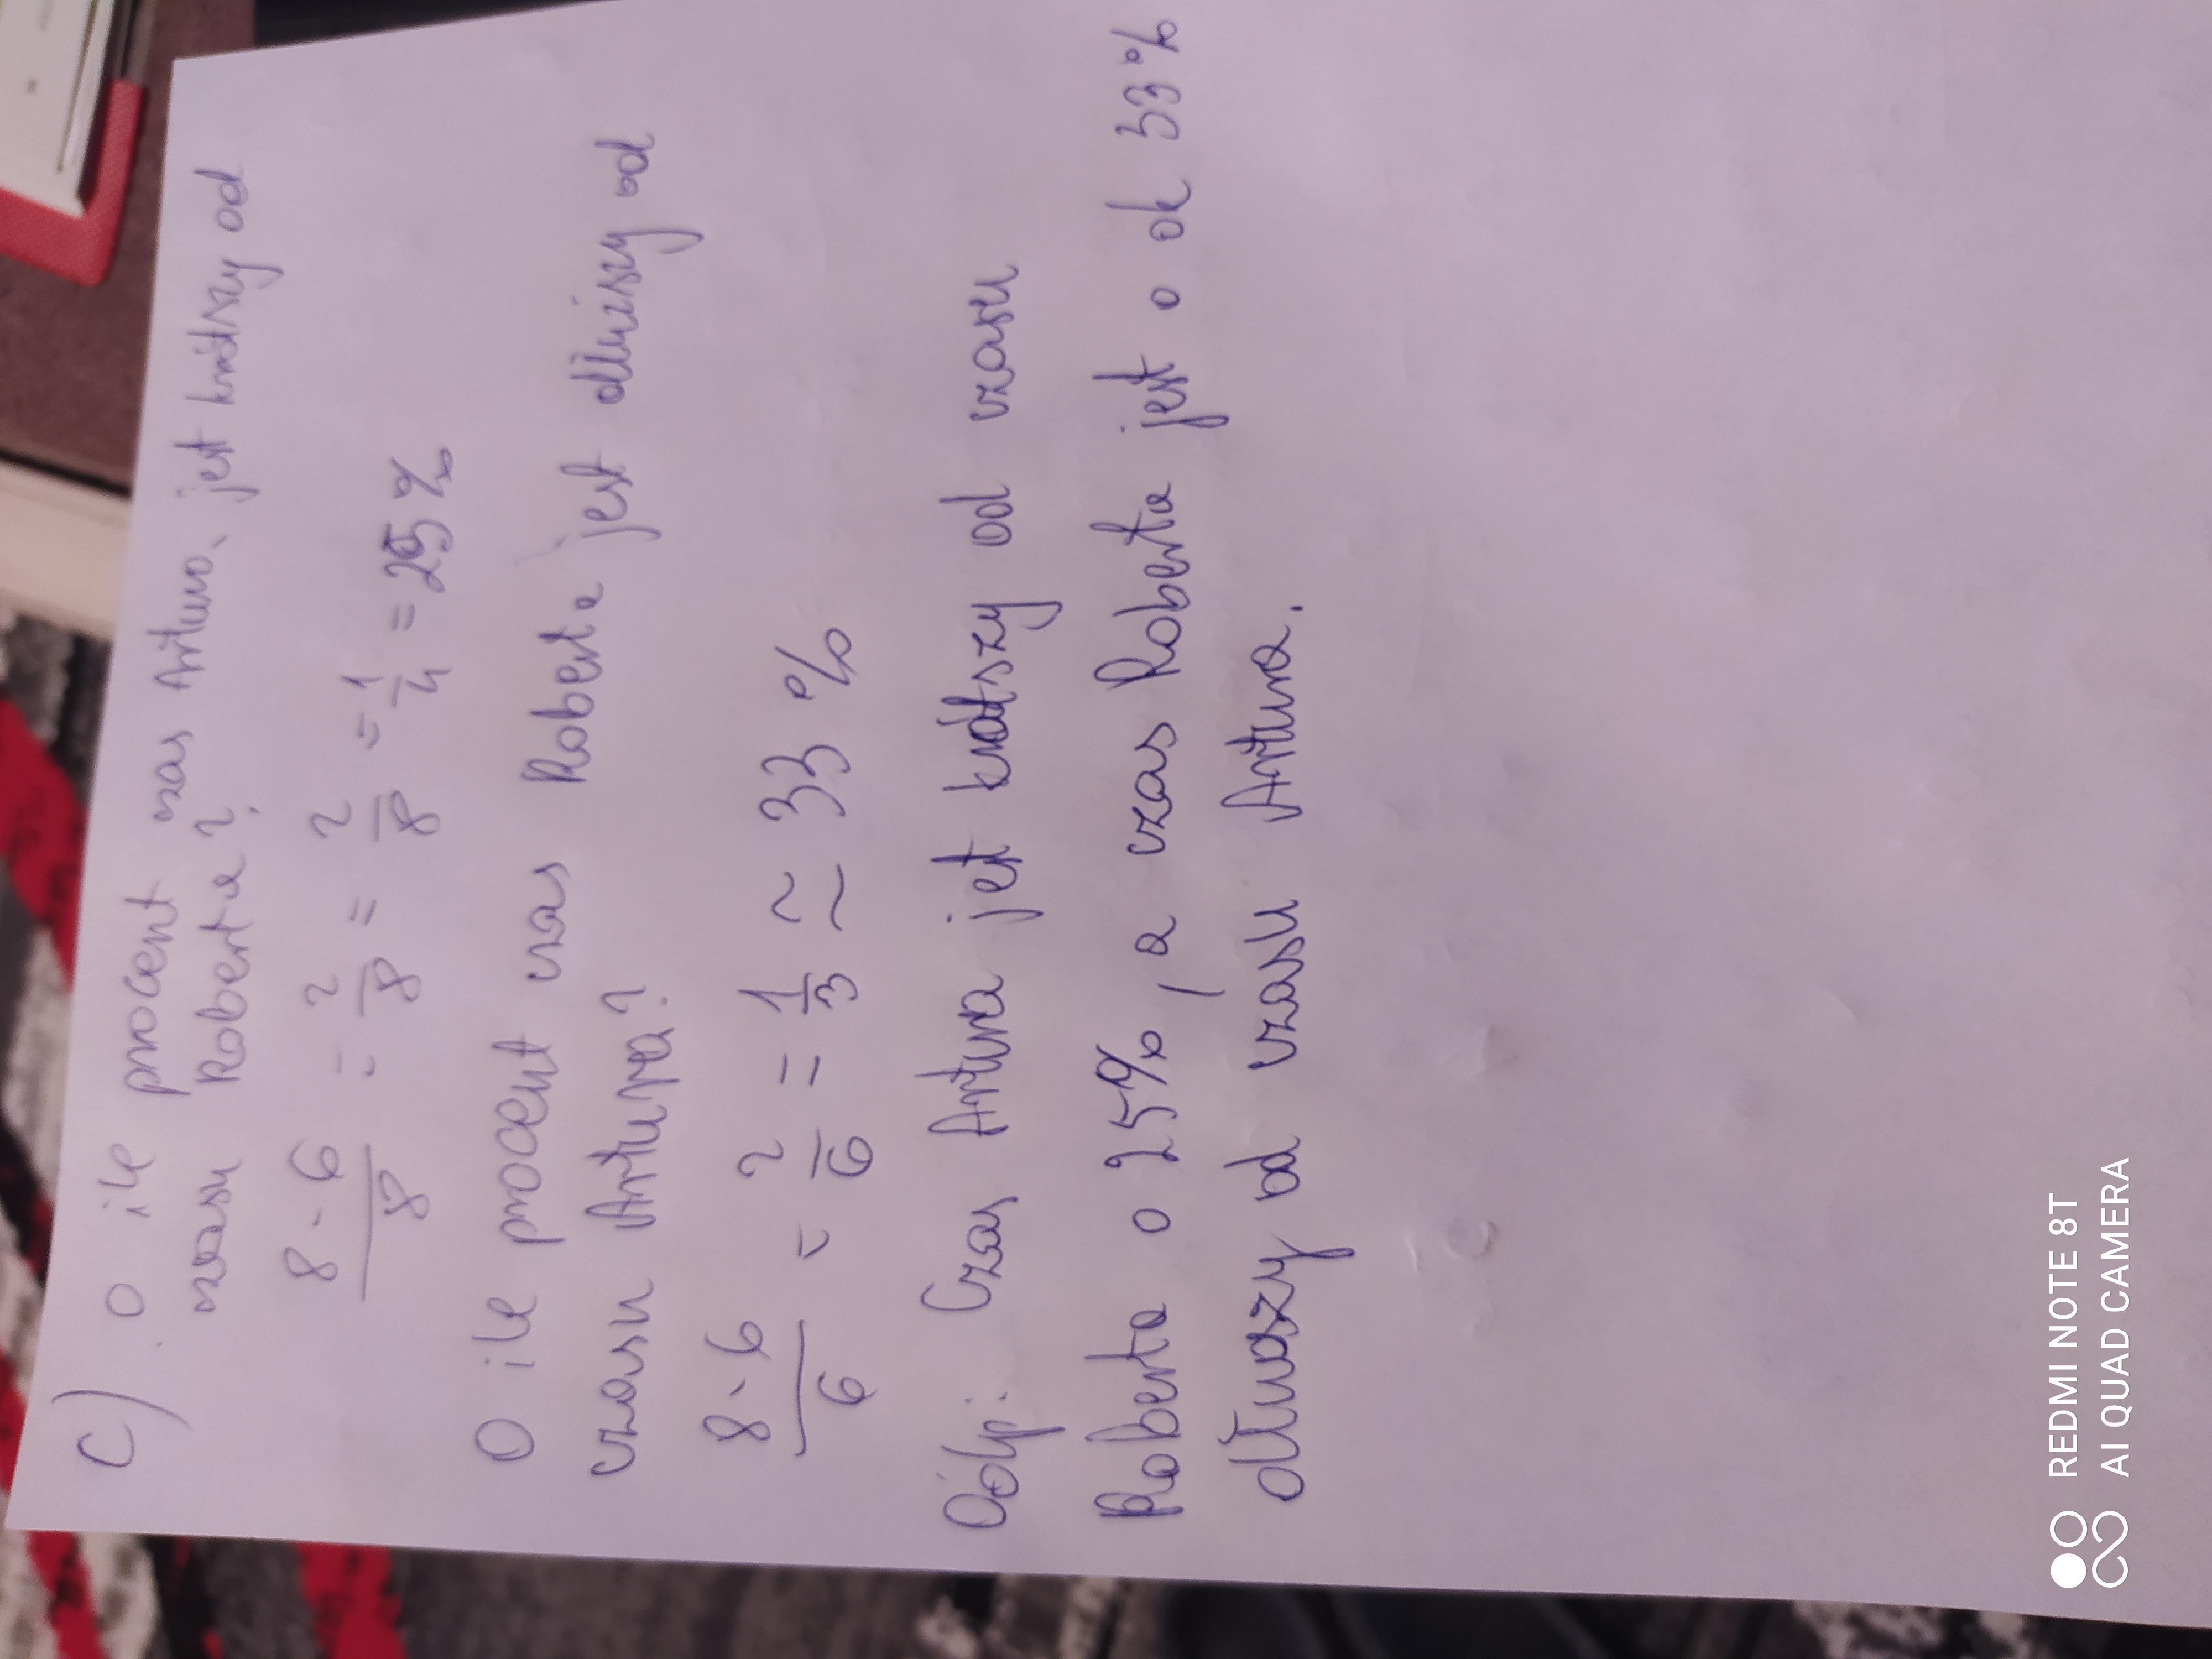 c) O ile procent czas Artura jest krótszy od
czasu Roberta?
8-6/8 = 2/8 = 2/8 = 1/4 = 25%
O ile procent czas Roberta jest dłuższy od
czasu Artura?
8-6/6 = 2/6 = 1/3 ≃ 33%
Odp: Czas Artura jet krótszy od czasu
Roberta o 25%, a czas Roberta jest o ok 33%
dłuższy od czasu Artura.
REDMI NOTE 8T
AI QUAD CAMERA